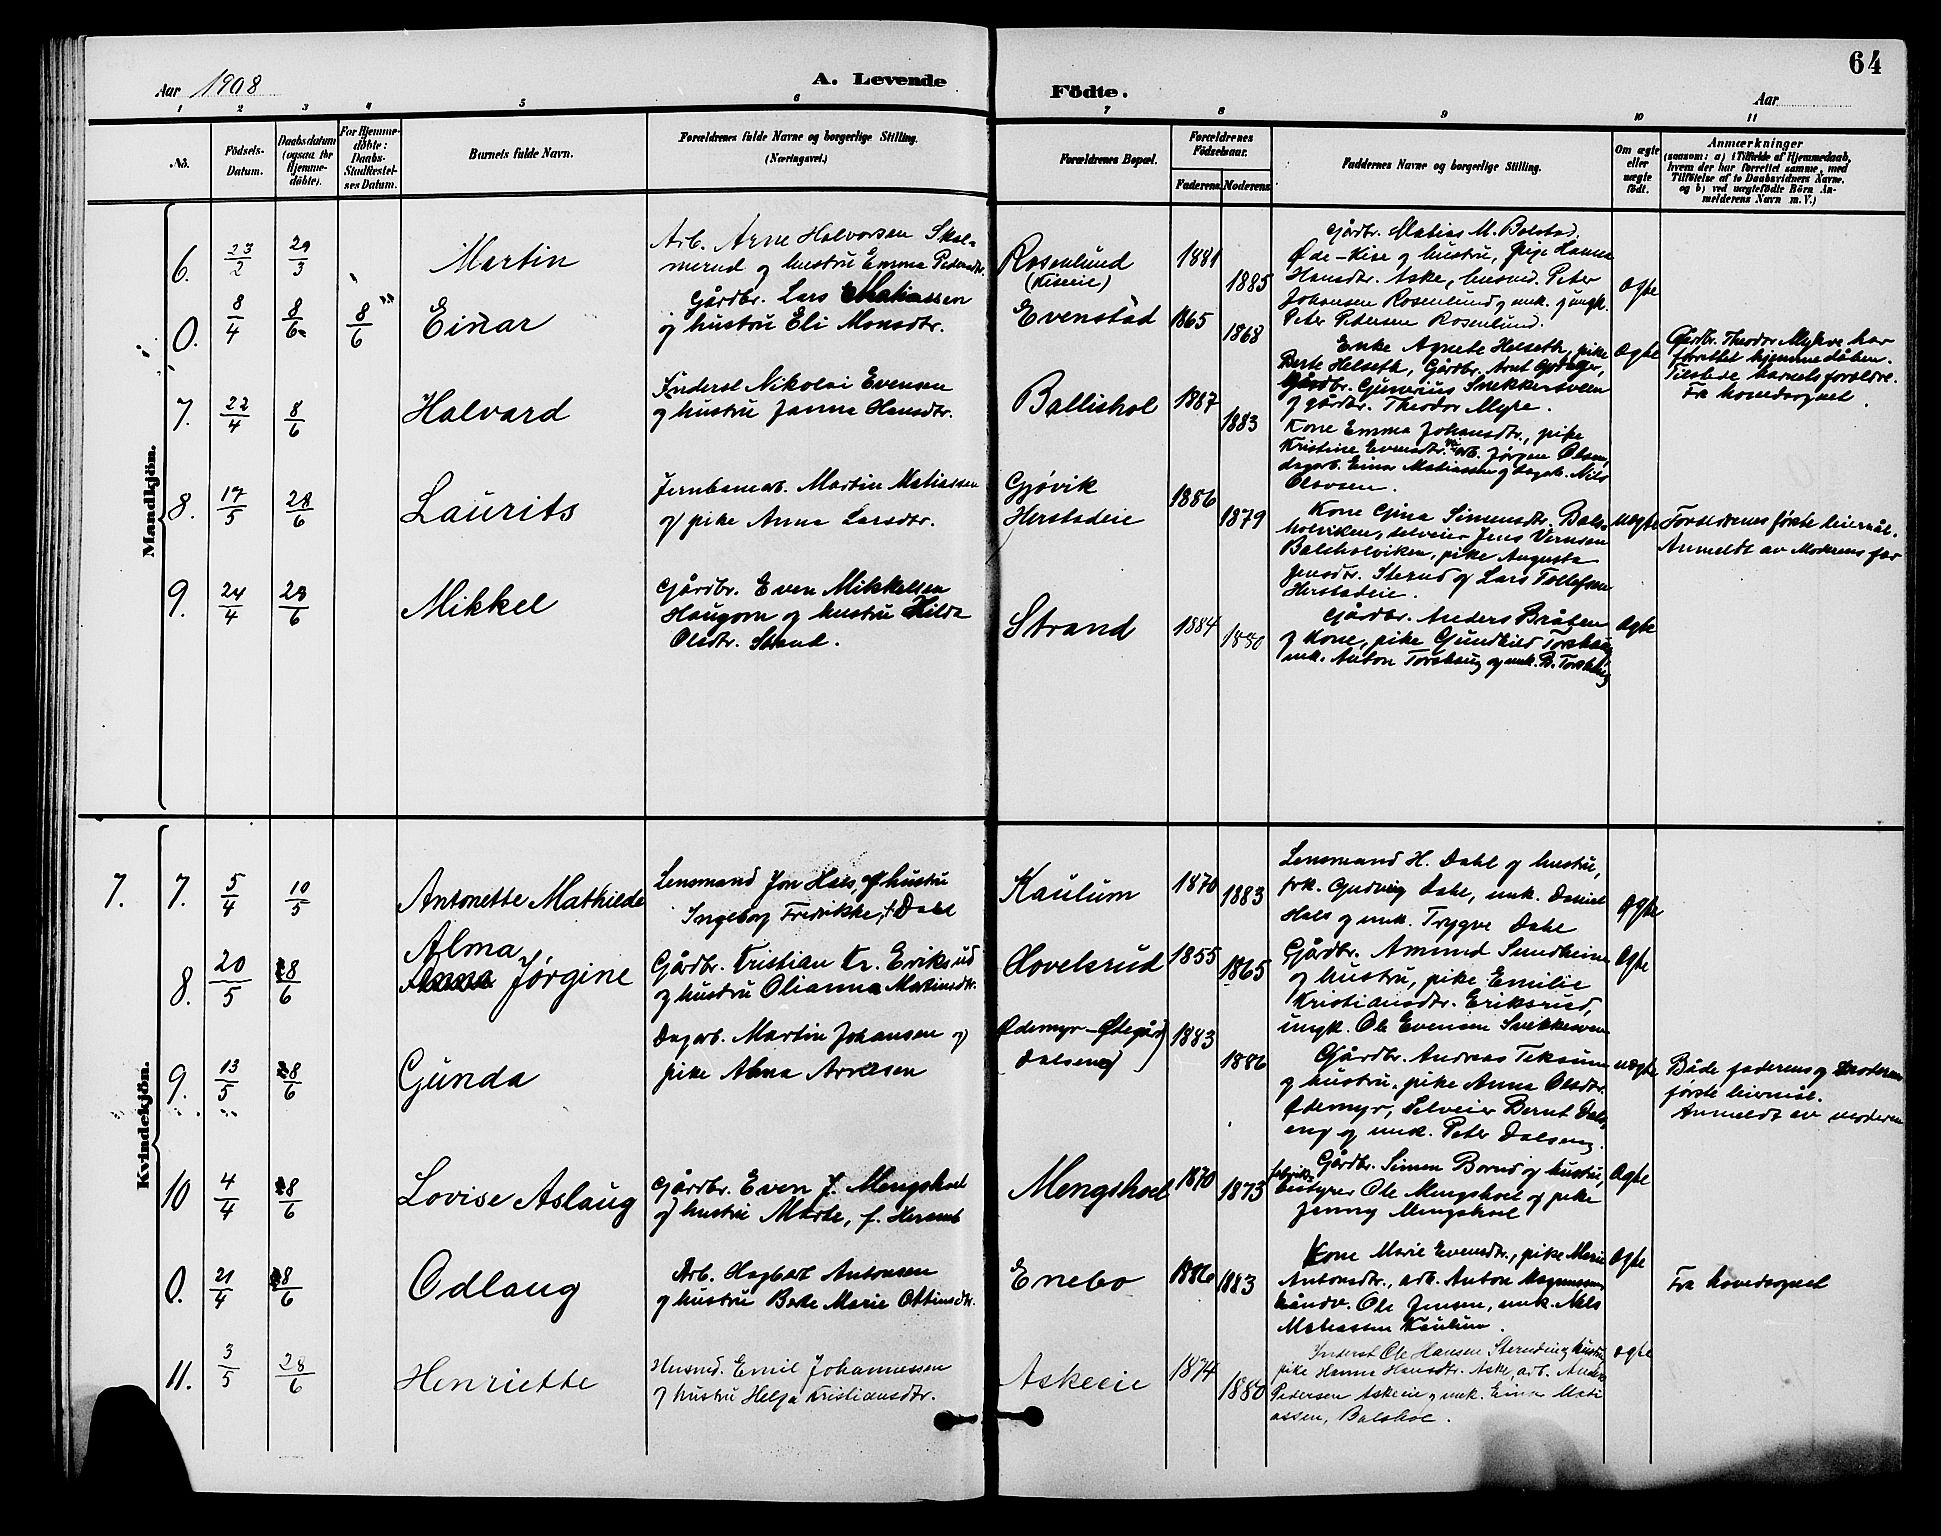 64
Aar 1908
A. Levende Födte.
Aar
1 2 3 4 5 6 7 8 9 10 11
No.
Födsels-Datum.
Daabsdatum (ogsaa for Hjemme-döbte).
For Hjemme-döbte: Daabs-Stadfæstel-ses Datum.
Barnets fulde Navn.
Forældrenes fulde Navne og borgerlige Stilling. (Næringsvei.)
Forældrenes Bopæl.
Forældrenes Födselsaar.
Faderens.
Moderens.
Faddernes Navne og borgerlige Stilling.
Om ægte eller uægte födt.
Anmærkninger
(saasom: a) i Tilfælde af Hjemmedaab,
hvem der har forrettet samme, med
Tilföielse af to Daabsvidners Navne,
og b) ved uægtefödte Börn An-
melderens Navn m. V.)
Mandkjön.
6. 23/2 29/3 Martin
Arb. Arne Halvorsen Skol-
merud og hustru Emma Pedersdtr.
Rosenlund
(Kiseeie)
1881 1885
Gårdbr. Matias M. Balstad,
Øde-Kise og hustru, pige Hanna
Hansdtr. Aske, husmd. Peter
Johansen Rosenlund og umk. gmyk.
Peter Petersen Rosenlund.
Ægte
0. 8/4 8/6 8/6 Einar
Gårdbr. Lars Matiassen
og hustru Eli Monsdtr.
Evenstad
1865 1868
Enke Agnete Helseth, pike
Berte Helseth, Gårdbr. Arnt Opsager,
Gårdbr. Gunerius Snekkersveen
og gårdbr. Theodor Myhre.
Ægte
Gårdbr. Theodor Myhre har
forrettet hjemmedåben.
Tilstede barnets forældre.
Fra hovedsognet.
7. 22/4 8/6 Halvard
Inderst Nikolai Evensen
og hustru Janna Hansdtr.
Ballishol
1887 1883
Kone Emma Johansdtr., pike
Kristine Evensdtr., arb. Jørgen Olsen,
dagarb. Einar Matiassen og dagarb. Nils
Olavsen.
8. 17/5 28/6 Laurits
Jernbanearb. Martin Matiassen
og pike Anna Larsdtr.
Gjøvik
Herstadeie
1886 1879
Kone Gina Simensdtr. Bals-
holviken, selveier Jens Vernsen
Balsholviken, pike Augusta
Jensdtr. Sterud og Lars Tollefsen
Herstadeie.
uægte
Forældrenes første leiermål.
Anmeldt av Moderens far
9. 24/4 28/6 Mikkel
Gårdbr. Even Mikkelsen
Haugom og hustru Hilda
Olsdtr. Strand.
Strand
1884 1880
Gårdbr. Anders Bråten
og Kone, pike Gundhild Torshaug
umk. Anton Torshaug og umk. B. Torshaug
Ægte
Kvindekjön.
7. 7. 5/4 10/5 Antonette Mathilde
Lensmand Jon Hals, og hustru
Ingeborg Fredrikke, f. Dahl
Kaulum
1870 1883
Lensmand H. Dahl og hustru,
frk. Gudveig Dahl, umk. Daniel
Hals og umk. Trygve Dahl
Ægte
8. 20/5 28/6 Alma
Anna Jørgine
Gårdbr. Kristian Kr. Eriksrud
og hustru Olianna Martinsdtr.
Hovelsrud
1855 1865
Gårdbr. Amund Sundheim
og hustru, pike Emilie
Kristiansdtr. Eriksrud,
ungk. Ole Evensen Snikkesveen
Ægte
9. 13/5 28/6 Gunda
Dagarb. Martin Johansen og
pike Alma Arnesen
Ødemyr-Ødegård
Dalseng
1883 1886
Gårdbr. Andreas Teksum
og hustru, pike Anna Olsdtr.
Ødemyr, Selveier Bernt Dals-
eng og umk. Peter Dalseng.
uægte
Både faderens og moderens
første leiermål.
Anmeldt av moderen
10 4/4 28/6 Lovise Aslaug
Gårdbr. Even J. Mengshoel
og hustru Marte, f. Herset
Mengshoel
1870 1873
Gårdbr. Simen Borud og hustru,
fabrik-
bestyrer Ole Mengshoel og pike
Jenny Mengshoel
Ægte
0. 21/4 28/6 Odlaug
Arb. Hagbart Antonsen
og hustru Berte Marie Ottinsdtr.
Enebo
1886 1883
Kone Marie Evensdtr., pike Marie
Antonsdtr., arb. Anton Magnussen,
håndv. Ole Jensen, umk. Nils
Matiassen Kaulum.
Ægte
Fra hovedsognet
11. 3/5 28/6 Henriette
Husmd. Emil Johannessen
og hustru Helga Kristiansdtr.
Askeeie
1874 1880
Inderst Ole Hansen Sterudeng hustru
pike Hanne Hansdtr. Aske, arb. Anders
Pedersen Askeeie og umk. Einar Mati-
assen, Balshoe.
Ægte